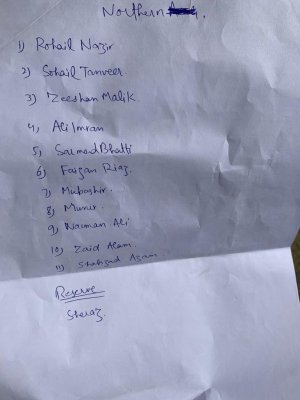 Northern
1) Rohail Nazir
2) Sohail Tanveer
3) Zeeshan Malik
4) Ali Imran
5) Sarmad Bhatti
6) Faizan Riaz.
7) Mubashir.
8) Munir.
9) Nauman Ali
10) Zaid Alam.
11) Shahzad Azam
Reserve
Sheraz.